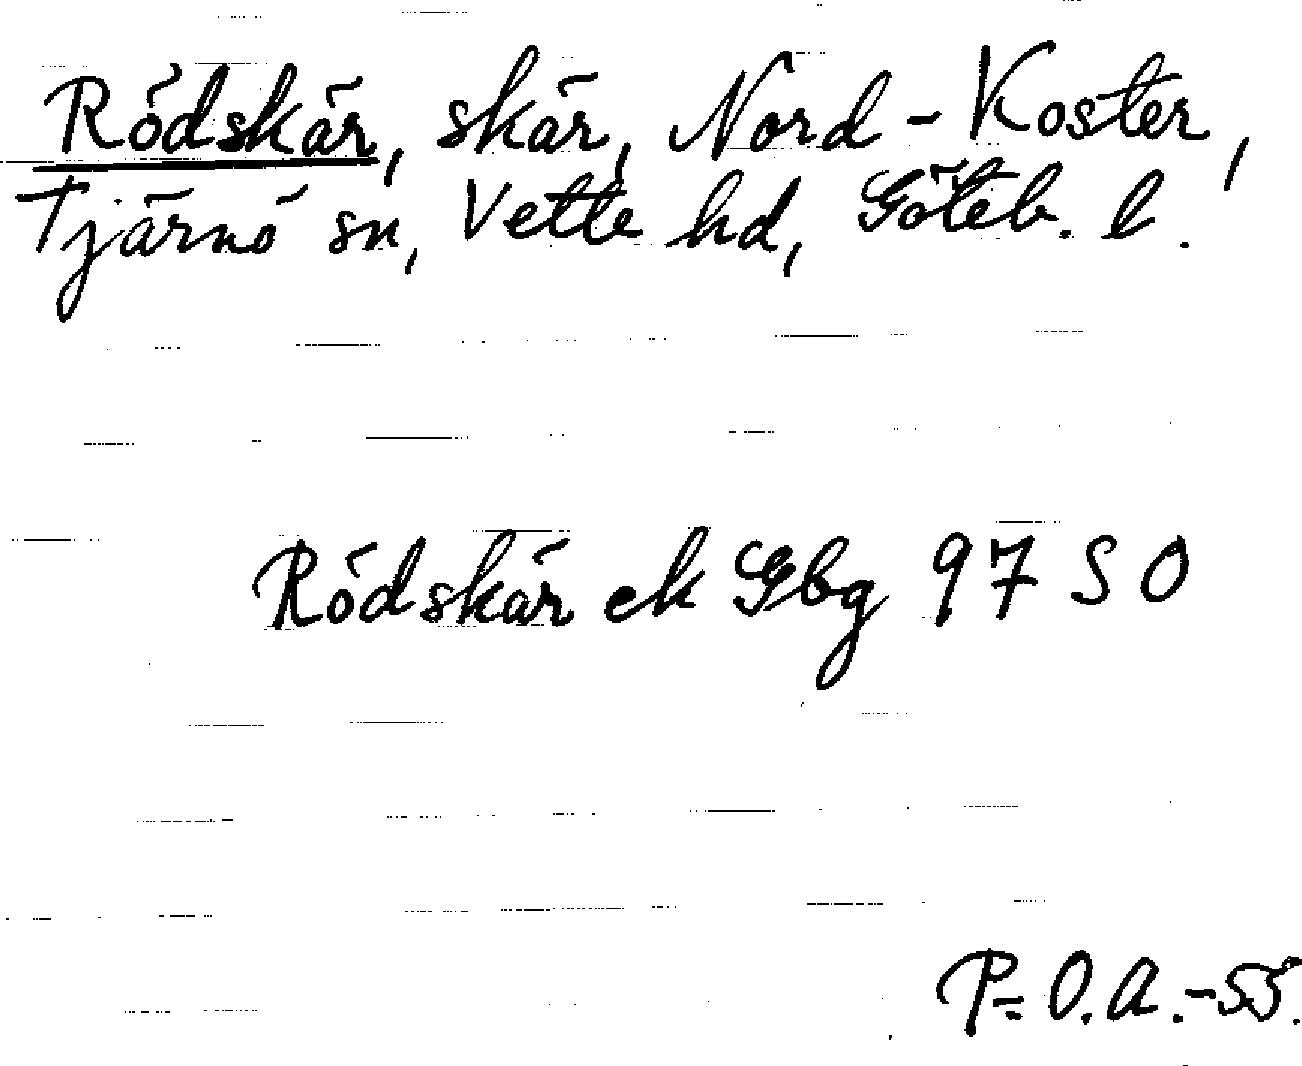 Rödskär, skär, Nord-Koster,
Tjärnö sn, Vette hd, Göteb. l.
Rödskär ek Gbg 97 SO
P=O.A.-55.